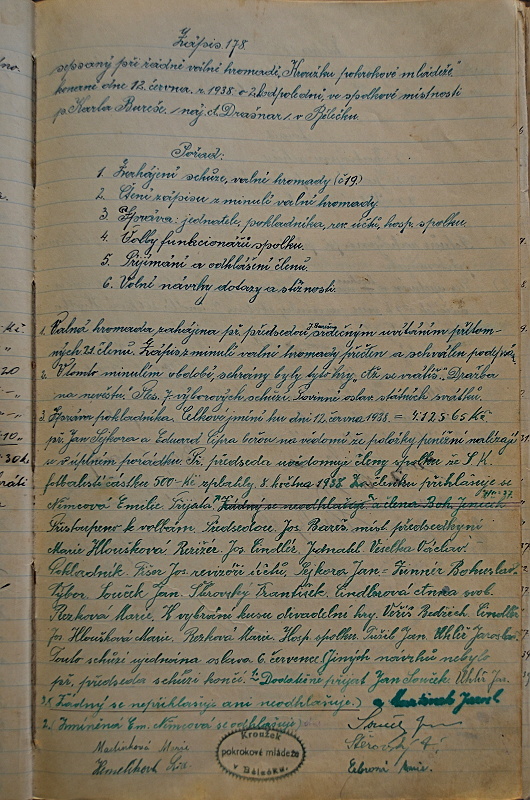 Zápis 178
sepsaný při řádné valné hromadě, "Kroužku pokrokové mládeže."
konané dne 12. června r. 1938. o odpoledni, ve spolkové místnosti
p. Karla Bureše. / náj. d. Drašnar / v Bělečku.
Pořad:
1. Zahájení schůze, valné hromady (č19.)
2. Čtení zápisu z minulé valné hromady.
3. Zpráva: jednatele, pokladníka, rev. účtů, hosp. spolku.
4. Volby funkcionářů spolku.
5. Přijímání a odhlášení členů.
6. Volní návrhy dotazy a stížnosti.
1. Valná hromada zahájena př. předsedou srdečným uvítáním přítom-
ných 21. členů. Zápis z minulé valné hromady přečten a schválen
2. V tomto minulém období, sehrány byly tyto hry, "Až se vrátíš" Dražba
na nevěstu. 7. výborových, schůzí. oslav státních svátků.
3. Zpráva pokladníka. Celkové jmění ku dni 12. června 1938. = 4.125·65 Kč.
př. Jan Sýkora a Eduard berou na vědomí že položky peněžní nalézají
v úplném pořádku. Př. předseda členy spolku že S. K.
fotbalisti částku 500 - Kč splatily. 8. května 1938 Za členku přihlašuje se
Němcová Emilie. Přijata. Žádný se neodhlašuje a člena Boh. Jeníček
Přistoupeno k volbám. Předsedou. Jos. Bareš. míst. předsedkyní
Marie Hloušková. Režizér. Jos. Lindler, Jednatel. Veselka Václav.
Pokladník. Fišar Jos. revizoři účtů, Sýkora Jan - Zinner Bohuslav.
Výbor. Souček Jan. Štěrovský František. Lindlerová Anna svob.
Rezková Marie. K vybrání kusu divadelní hry. Věříš Bedřich. Lindler
Jos. Hloušková Marie. Rezková Marie. Hosp. spolku. Jan. Uhlíř Jaroslav.
Touto schůzí ujednána oslava 6. července. Jiných návrhů nebylo
př. předseda schůzi končí. Dodatečně přijat. Jan Souček. Uhlíř Jar.
(Žádný se nepřihlašuje ani neodhlašuje.) a Martinek Jarosl.
2. Jmenená Em. Němcová se odhlašuje
Souček Jan
Martinková Marie
Štěrovský
Kroužek
pokrokové mládeže
v Bělečku.